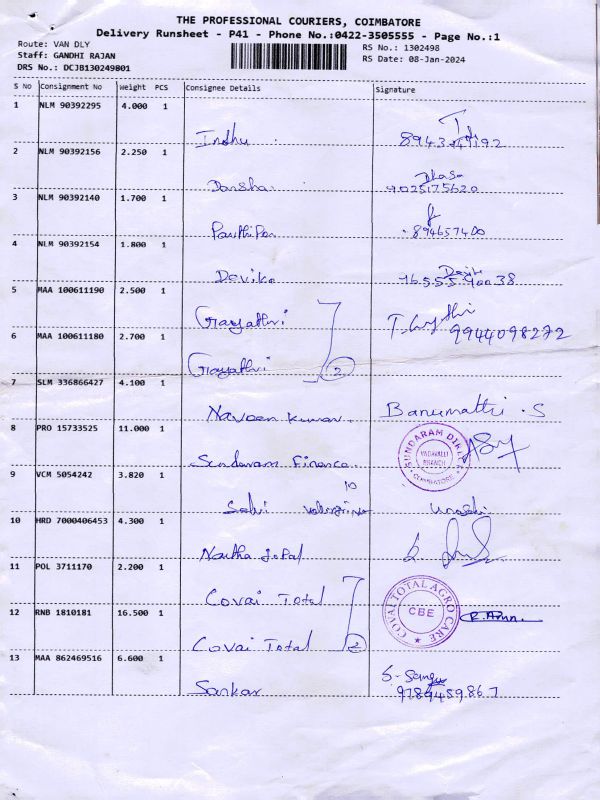 THE PROFESSIONAL COURIERS, COIMBATORE
Delivery Runsheet - P41 - Phone No.:0422-3505555 - Page No.:1
Route: VAN DLY
RS No.: 1302498
Staff: GANDHI RAJAN
RS Date: 08-Jan-2024
DRS No.: DCJB130249801
S No Consignment No Weight PCS Consignee Details Signature
1 NLM 90392295 4.000 1
Indhu
2 NLM 90392156 2.250 1
Darsha 9025175620
3 NLM 90392140 1.700 1
Parthipan 894657400
4 NLM 90392154 1.800 1
Devika
5 MAA 100611190 2.500 1
Gayathri
6 MAA 100611180 2.700 1
9944098272
Gayathri 2
7 SLM 336866427 4.100 1
Naveen kumar Banumathi . S
8 PRO 15733525 11.000 1
SUNDARAM
VADAVALLI
BRANCH
COIMBATORE
Sundaram Finance
9 VCM 5054242 3.820 1
10
Selvi
10 HRD 7000406453 4.300 1
Gopal
11 POL 3711170 2.200 1
Covai Total
COVAI TOTAL AGRO CARE
CBE
12 RNB 1810181 16.500 1
Covai Total 2
13 MAA 862469516 6.600 1
Sankar